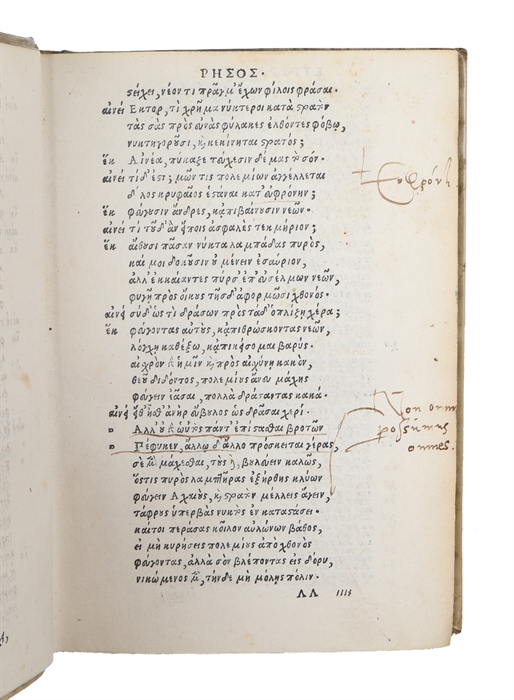 ΡΗΣΟΣ.
στείχει, νέον τι πρᾶγμ' ἔχων φίλοις φράσαι.
αἰνεί Εκτορ, τί χρῆμα νύκτεροι κατὰ στρατὸν
τὰς σὰς πρὸς εὐνὰς φύλακες ἐλθόντες φόβῳ,
νυκτηγοροῦσι, καὶ κεκίνηται στρατός;
ἕκ Αἰνέα, πύκαζε τεύχεσιν δέμας τὸ σόν.
αἰνεί τί δ' ἔστι; μῶν τις πολεμίων ἀγγέλλεται
δόλος κρυφαῖος ἑστάναι κατ' εὐφρόνην;
ἕκ φεύγουσιν ἄνδρες, κἀπιβαίνουσιν νεῶν.
αἰνεί τί τοῦδ' ἂν εἴποις ἀσφαλὲς τεκμήριον;
ἕκ αἴθουσι πᾶσαν νύκτα λαμπάδας πυρὸς,
καί μοι δοκοῦσιν οὐ μένειν ἐσαύριον,
ἀλλ' ἐκκέαντες πύρσ' ἐπ' εὐσέλμων νεῶν,
φυγῇ πρὸς οἴκους τῆσδ' ἀφορμῶσι χθονός.
αἰνεί σὺ δ' ὡς τί δράσων πρὸς τάδ' ὁπλίζῃ χέρα;
ἕκ φεύγοντας αὐτοὺς, κἀπιθρώσκοντας νεῶν,
λόγχῃ καθέξω, κἀπικείσομαι βαρύς.
αἰσχρὸν γὰρ ἡμῖν καὶ πρὸς αἰσχύνῃ κακὸν,
θεοῦ διδόντος, πολεμίους ἄνευ μάχης
φεύγειν ἐᾶσαι, πολλὰ δράσαντας κακά.
αἰνεί εἴθ' ἦσθ' ἀνὴρ εὔβουλος ὡς δρᾶσαι χερί.
Αλλ' οὐ γὰρ ωὑτὸς πάντ' ἐπίστασθαι βροτῶν
Πέφυκεν, ἄλλῳ δ' ἄλλο πρόσκειται γέρας,
σὲ μὲν μάχεσθαι, τοὺς δὲ, βουλεύειν καλῶς,
ὅστις πυρὸς λαμπτῆρας ἐξήρθης κλύων
φεύγειν Αχαιοὺς, καὶ στρατὸν μέλλεις ἄγειν,
τάφρους ὑπερβὰς νυκτὸς ἐν καταστάσει.
καίτοι περάσας κοῖλον αὐλώνων βάθος,
εἰ μὴ κυρήσεις πολεμίους ἀπὸ χθονὸς
φεύγοντας, ἀλλὰ σὸν βλέποντας εἰς δόρυ,
νικώμενος μὲν, τήνδε μὴ μόλῃς πόλιν.
ΛΛ iiii
Non omnia
possumus
omnes.